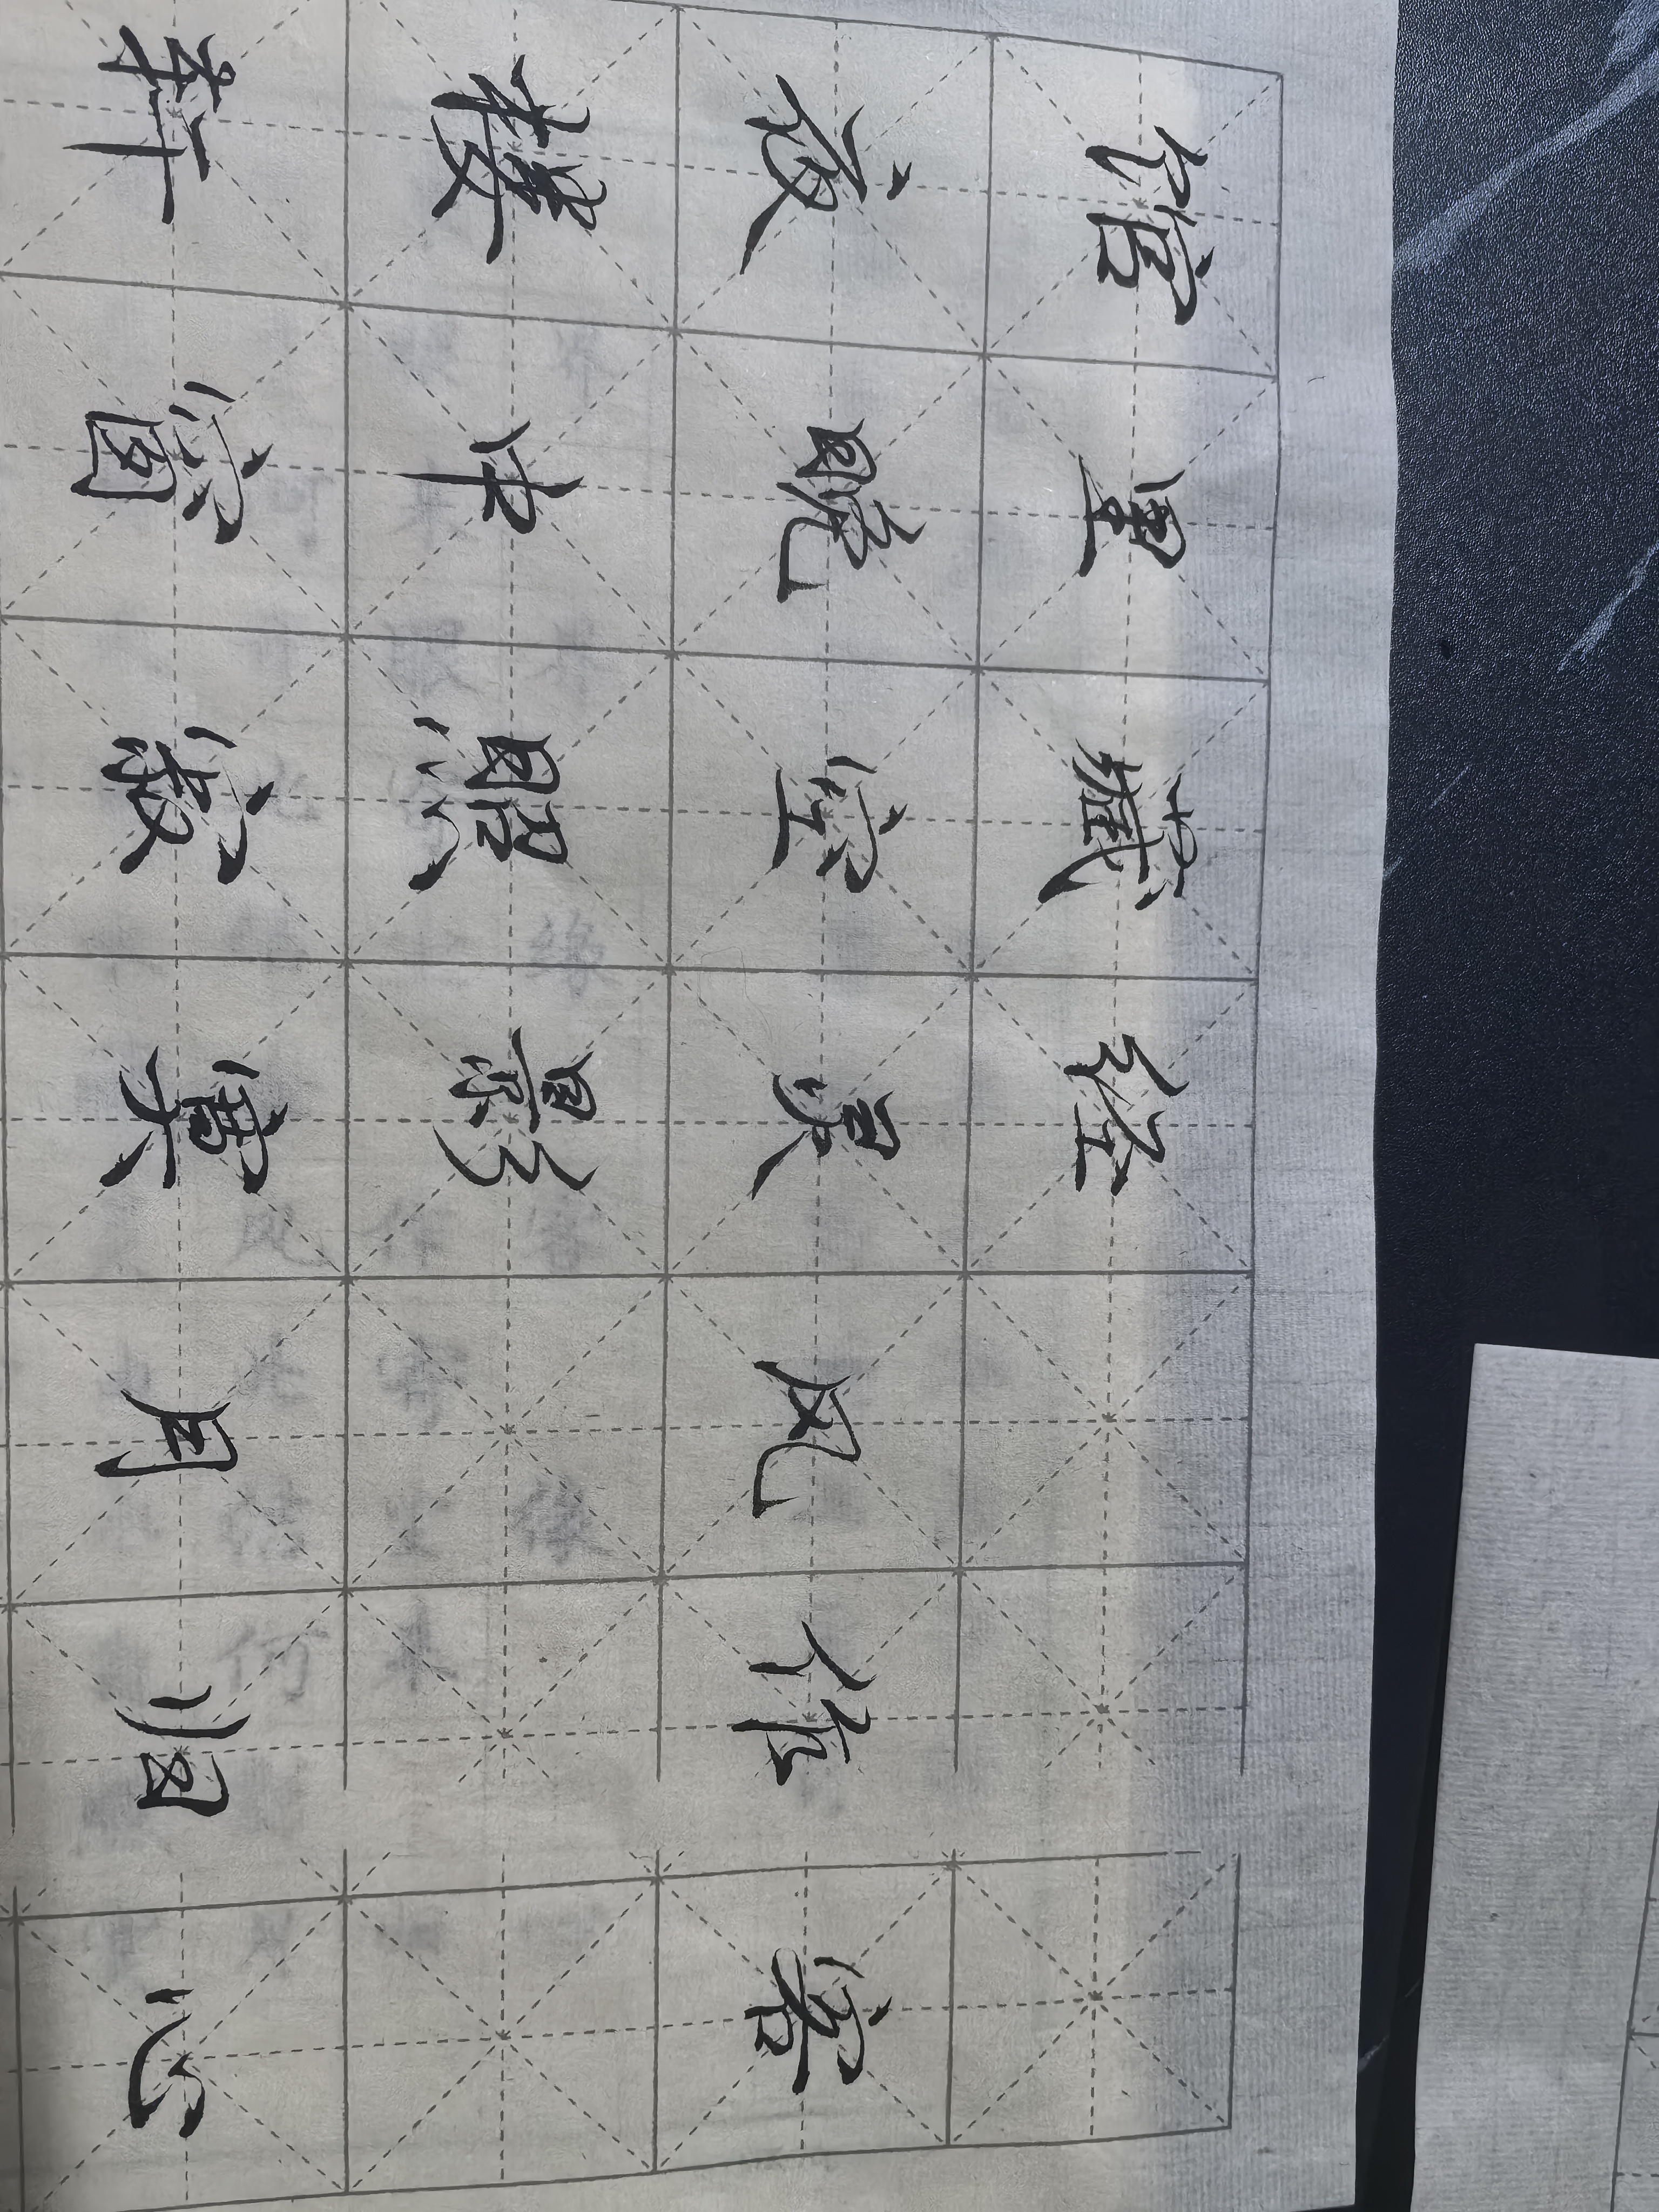 馆里藏经
夜晚空灵风作客
楼中照影
轩窗寂寞月归心